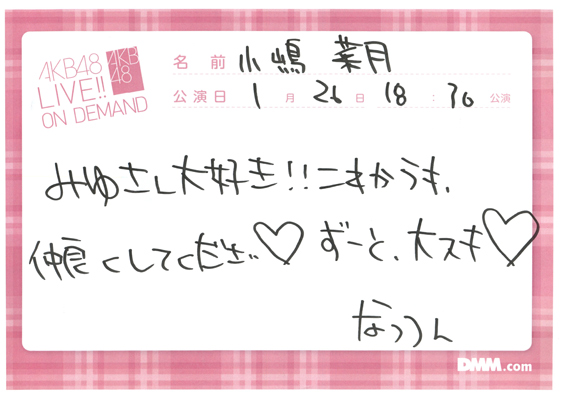 AKB48
LIVE!!
ON DEMAND
AKB
48
名前 小嶋 菜月
公演日 1月26日 18:30公演
みゆさん大好き!!これからも、
仲良くしてください♡ずーと、大スキ♡
なっつん
DMM.com